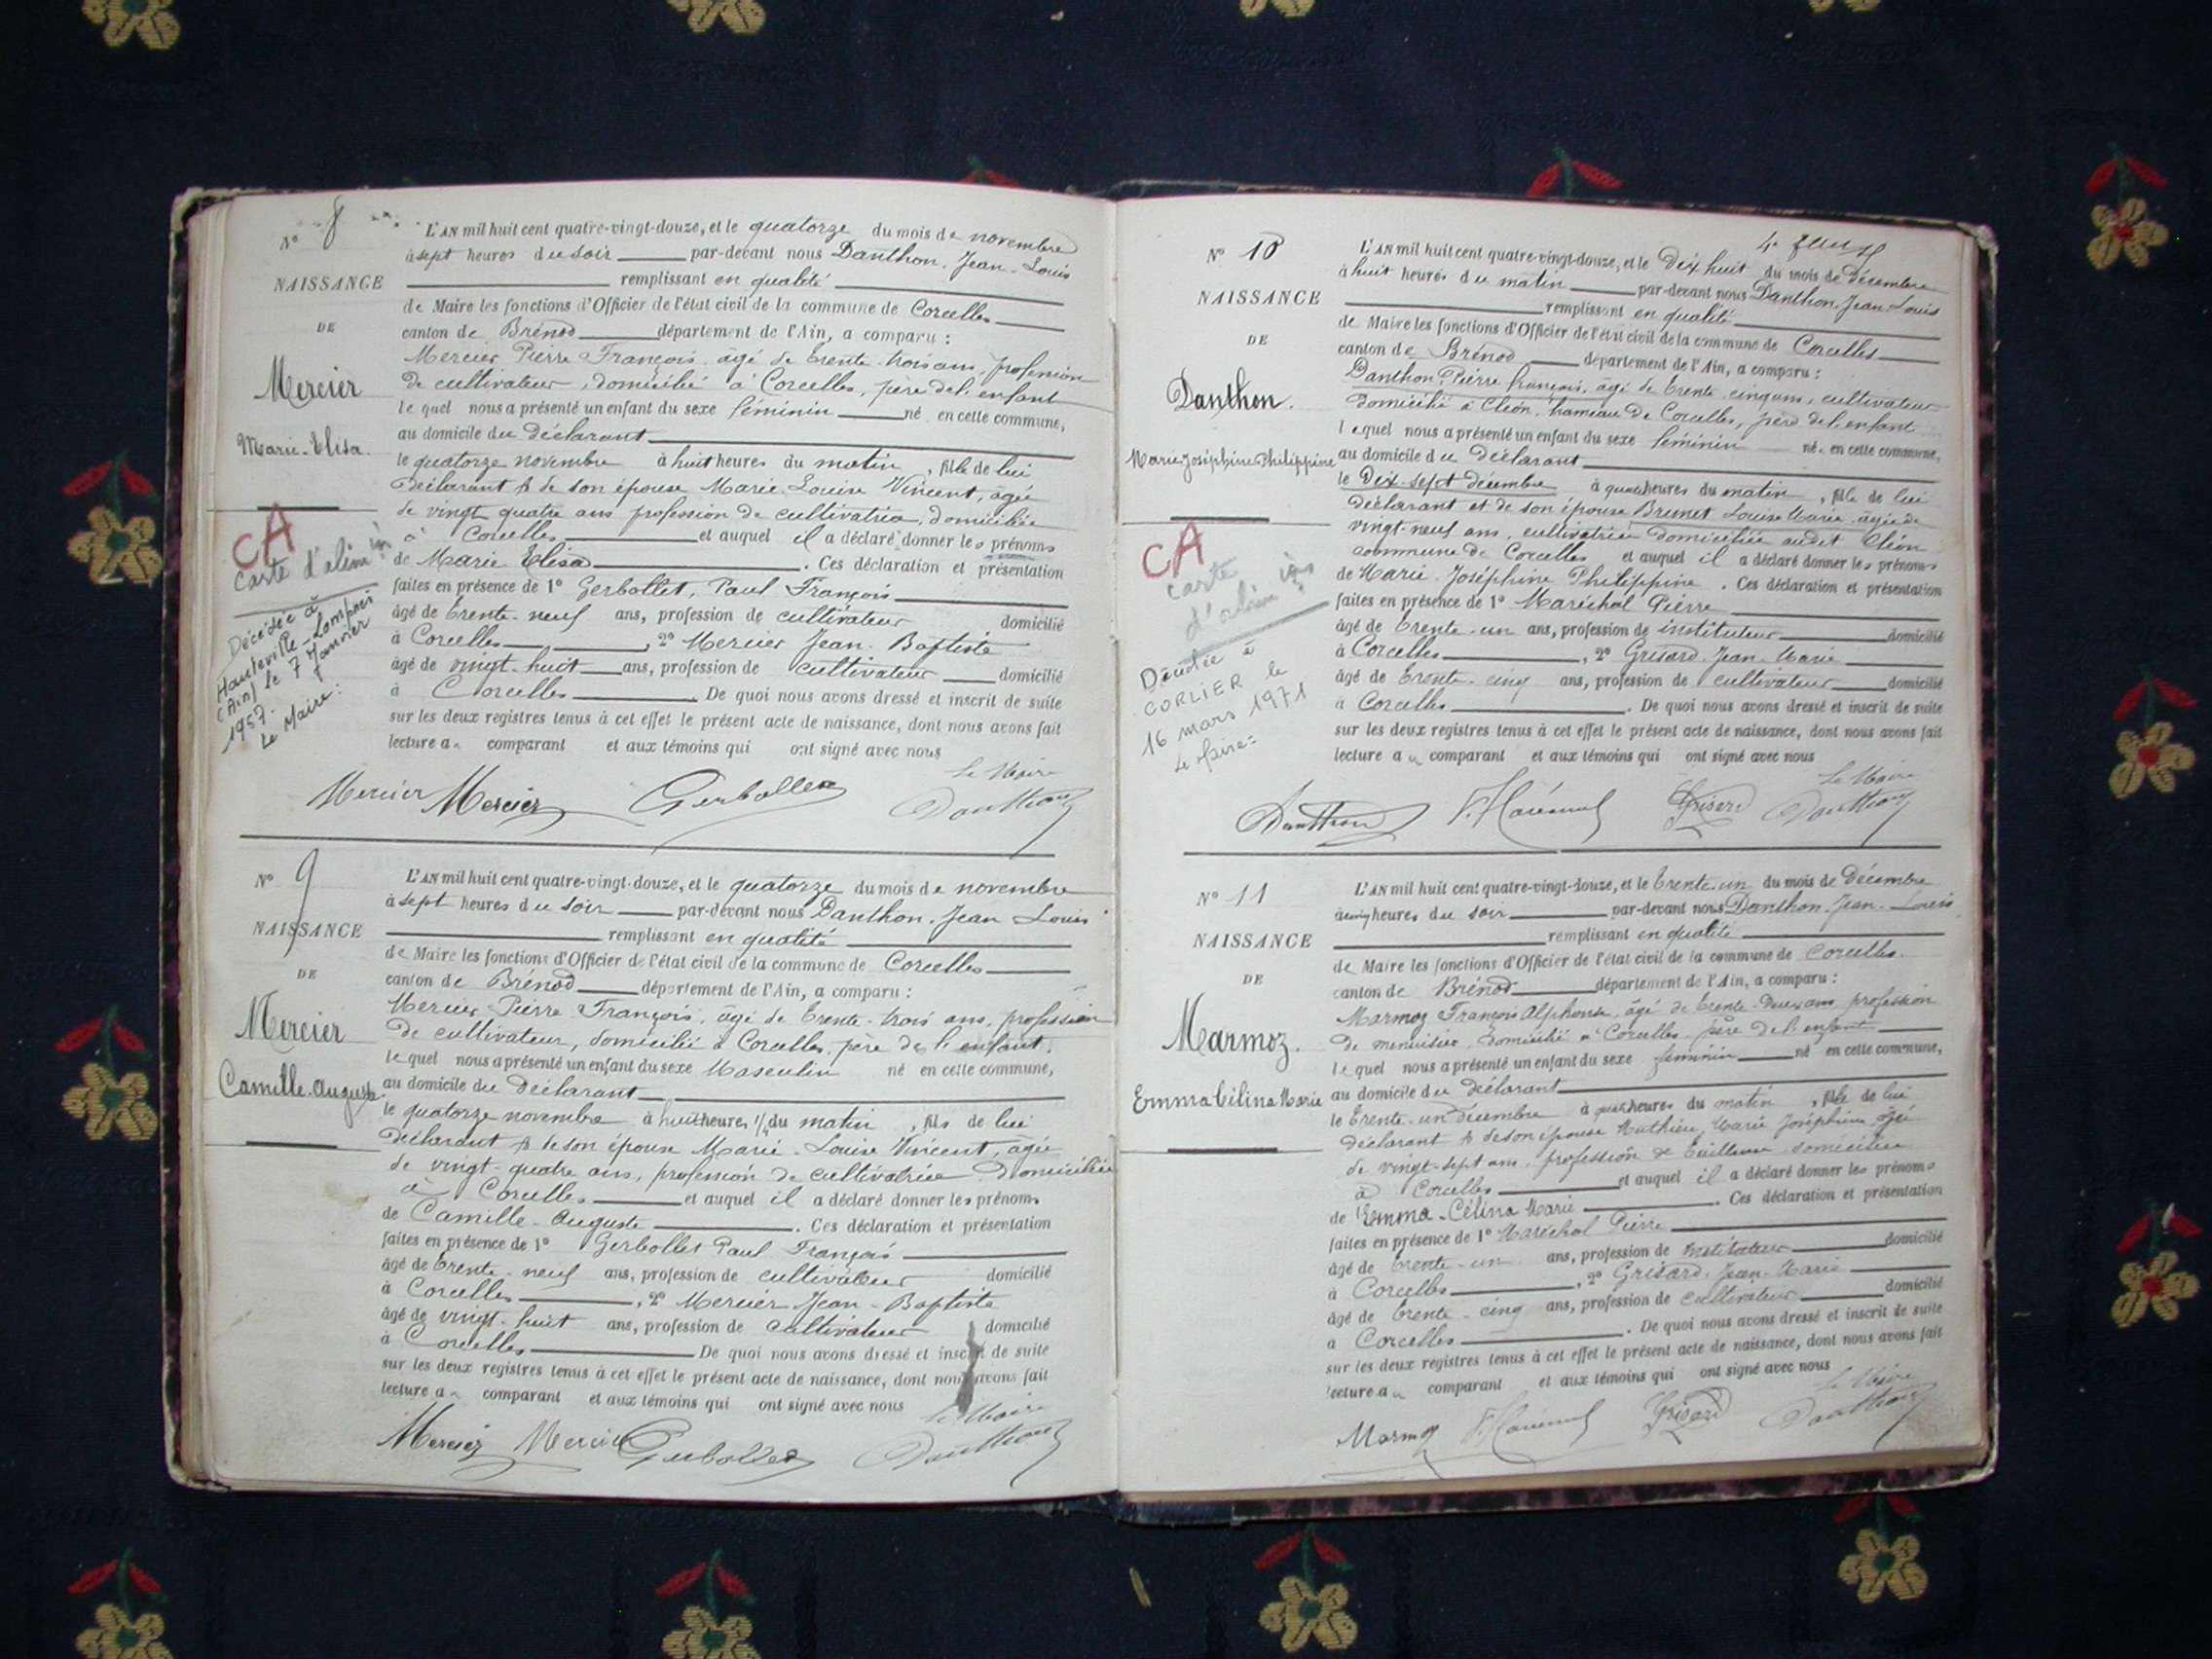 N° 8
NAISSANCE
DE
Mercier
Marie-Elisa.
CA
Carte d'alim
Décédée à
Hauteville-Lompnes
(Ain) le 7 Janvier
1957.
Le Maire:
L'AN mil huit cent quatre-vingt-douze, et le quatorze du mois de novembre
à sept heures du soir par-devant nous Danthon, Jean-Louis
remplissant en qualité
de Maire les fonctions d'Officier de l'état civil de la commune de Corcelles
canton de Brénod département de l'Ain, a comparu :
Mercier Pierre François, âgé de trente-trois ans, profession
de cultivateur, domicilié à Corcelles, père de l'enfant
le quel nous a présenté un enfant du sexe féminin né en cette commune,
au domicile du déclarant
le quatorze novembre à huit heures du matin, fille de lui
déclarant & de son épouse Marie-Louise Vincent, âgée
de vingt quatre ans profession de cultivatrice, domiciliée
à Corcelles et auquel il a déclaré donner les prénoms
de Marie Elisa. Ces déclaration et présentation
faites en présence de 1° Gerbollet, Paul François
âgé de trente-neuf ans, profession de cultivateur domicilié
à Corcelles, 2° Mercier Jean-Baptiste
âgé de vingt-huit ans, profession de cultivateur domicilié
à Corcelles. De quoi nous avons dressé et inscrit de suite
sur les deux registres tenus à cet effet le présent acte de naissance, dont nous avons fait
lecture au comparant et aux témoins qui ont signé avec nous
Le Maire
Mercier Mercier Gerbollet Danthon
N° 9
NAISSANCE
DE
Mercier
Camille-Auguste
L'AN mil huit cent quatre-vingt-douze, et le quatorze du mois de novembre
à sept heures du soir par-devant nous Danthon, Jean Louis
remplissant en qualité
de Maire les fonctions d'Officier de l'état civil de la commune de Corcelles
canton de Brénod département de l'Ain, a comparu :
Mercier Pierre François, âgé de trente-trois ans, profession
de cultivateur, domicilié à Corcelles, père de l'enfant.
le quel nous a présenté un enfant du sexe Masculin né en cette commune,
au domicile du déclarant
le quatorze novembre à huit heures du matin, fils de lui
déclarant & de son épouse Marie-Louise Vincent, âgée
de vingt-quatre ans, profession de cultivatrice domiciliée
à Corcelles et auquel il a déclaré donner les prénoms
de Camille-Auguste. Ces déclaration et présentation
faites en présence de 1° Gerbollet Paul François
âgé de trente-neuf ans, profession de cultivateur domicilié
à Corcelles, 2° Mercier Jean-Baptiste
âgé de vingt-huit ans, profession de cultivateur domicilié
à Corcelles De quoi nous avons dressé et inscrit de suite
sur les deux registres tenus à cet effet le présent acte de naissance, dont nous avons fait
lecture au comparant et aux témoins qui ont signé avec nous
Le Maire
Mercier Mercier Gerbollet Danthon
N° 10
NAISSANCE
DE
Danthon.
Marie Joséphine Philippine
CA
carte
d'alim
Décédée à
CORLIER le
16 mars 1971
Le Maire:
L'AN mil huit cent quatre-vingt-douze, et le Dix huit du mois de décembre
à huit heures du matin par-devant nous Danthon, Jean-Louis
remplissant en qualité
de Maire les fonctions d'Officier de l'état civil de la commune de Corcelles
canton de Brénod département de l'Ain, a comparu :
Danthon, Pierre françois, âgé de trente cinq ans, cultivateur
domicilié à Cléon, hameau de Corcelles, père de l'enfant
lequel nous a présenté un enfant du sexe féminin né en cette commune,
au domicile du déclarant
le Dix-sept décembre à quatre heures du matin, fille de lui
déclarant et de son épouse Brunet Louise Marie âgée de
vingt-neuf ans, cultivatrice domiciliée audit Cléon
commune de Corcelles et auquel il a déclaré donner les prénoms
de Marie Joséphine Philippine. Ces déclaration et présentation
faites en présence de 1° Maréchal Pierre
âgé de trente-un ans, profession de instituteur domicilié
à Corcelles, 2° Grisard Jean-Marie
âgé de trente-cinq ans, profession de cultivateur domicilié
à Corcelles. De quoi nous avons dressé et inscrit de suite
sur les deux registres tenus à cet effet le présent acte de naissance, dont nous avons fait
lecture au comparant et aux témoins qui ont signé avec nous
Le Maire
Danthon P. Maréchal Grisard Danthon
N° 11
NAISSANCE
DE
Marmoz.
Emma Célina Marie
L'AN mil huit cent quatre-vingt-douze, et le trente-un du mois de Décembre
à cinq heures du soir par-devant nous Danthon, Jean-Louis
remplissant en qualité
de Maire les fonctions d'Officier de l'état civil de la commune de Corcelles.
canton de Brénod département de l'Ain, a comparu :
Marmoz François Alphonse, âgé de trente-deux ans, profession
de menuisier, domicilié à Corcelles, père de l'enfant
lequel nous a présenté un enfant du sexe féminin né en cette commune,
au domicile du déclarant
le trente-un décembre à quatre heures du matin, fille de lui
déclarant & de son épouse Mathieu, Marie Joséphine âgée
de vingt-sept ans, profession de tailleuse domiciliée
à Corcelles et auquel il a déclaré donner les prénoms
de Emma-Célina Marie. Ces déclaration et présentation
faites en présence de 1° Maréchal Pierre
âgé de trente-un ans, profession de instituteur domicilié
à Corcelles, 2° Grisard, Jean-Marie
âgé de trente-cinq ans, profession de cultivateur domicilié
à Corcelles. De quoi nous avons dressé et inscrit de suite
sur les deux registres tenus à cet effet le présent acte de naissance, dont nous avons fait
lecture au comparant et aux témoins qui ont signé avec nous
Le Maire
Marmoz P. Maréchal Grisard Danthon